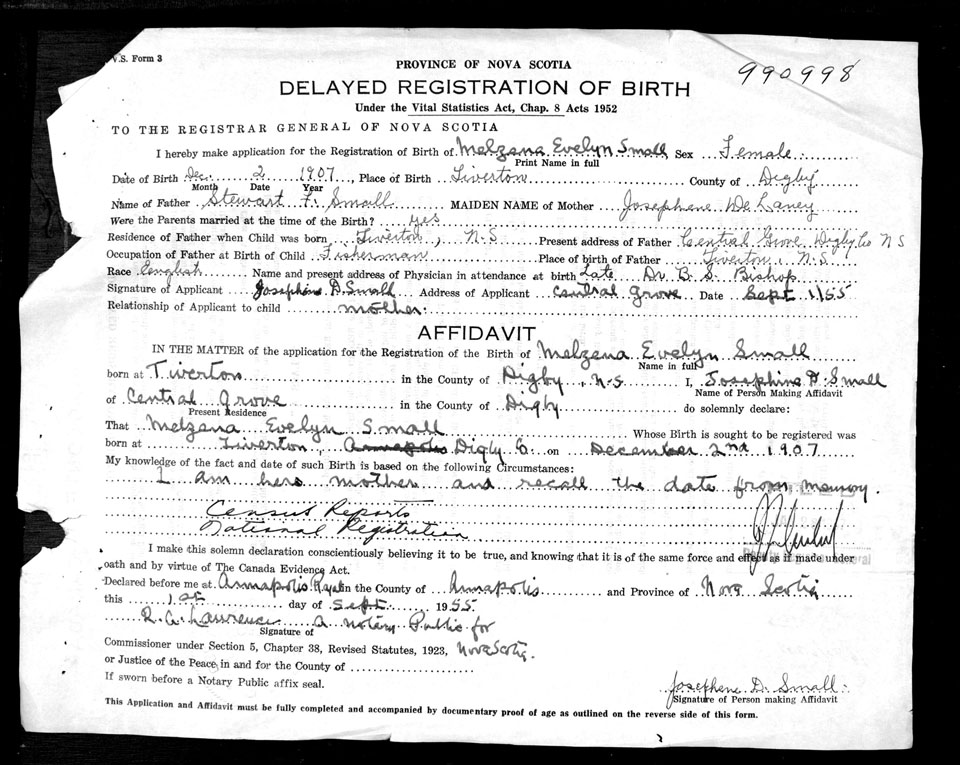 V.S. Form 3
PROVINCE OF NOVA SCOTIA
990998
DELAYED REGISTRATION OF BIRTH
Under the Vital Statistics Act, Chap. 8 Acts 1952
TO THE REGISTRAR GENERAL OF NOVA SCOTIA
I hereby make application for the Registration of Birth of Melzena Evelyn Small Sex Female
Print Name in full
Date of Birth Dec. 2 1907, Place of Birth Tiverton County of Digby
Month Date Year
Name of Father Stewart F. Small MAIDEN NAME of Mother Josephene DeLaney
Were the Parents married at the time of the Birth? yes
Residence of Father when Child was born Tiverton, N.S Present address of Father Central Grove Digby Co N S
Occupation of Father at Birth of Child Fisherman Place of birth of Father Tiverton, N.S
Race English Name and present address of Physician in attendance at birth Late Dr. B. S. Bishop
Signature of Applicant Josephene D. Small Address of Applicant Central Grove Date Sept 1/55
Relationship of Applicant to child mother.
AFFIDAVIT
IN THE MATTER of the application for the Registration of the Birth of Melzena Evelyn Small
Name in full
born at Tiverton in the County of Digby, N.S I, Josephine D. Small
Name of Person Making Affidavit
of Central Grove in the County of Digby do solemnly declare:
Present Residence
That Melzena Evelyn Small Whose Birth is sought to be registered was
born at Tiverton, Annapolis Digby Co. on December 2nd 1907
My knowledge of the fact and date of such Birth is based on the following Circumstances:
I am hers mother and recall the date from memory.
Census Reports
National Registration
I make this solemn declaration conscientiously believing it to be true, and knowing that it is of the same force and effect as if made under
oath and by virtue of The Canada Evidence Act.
Declared before me at Annapolis Royal in the County of Annapolis and Province of Nova Scotia
this 1st day of Sept 1955
R. A. Lawrence a Notary Public for
Signature of
Commissioner under Section 5, Chapter 38, Revised Statutes, 1923, Nova Scotia.
or Justice of the Peace in and for the County of
If sworn before a Notary Public affix seal.
Josephene D. Small
Signature of Person making Affidavit
This Application and Affidavit must be fully completed and accompanied by documentary proof of age as outlined on the reverse side of this form.